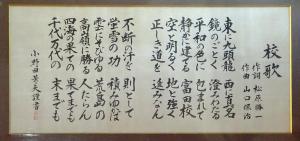 校歌
作詞 松原勝一
作曲 山口保治
東に九頭龍 西に真名
鏡のごとく 澄みわたる
平和の色に 包まれて
静かに建てる 富田校
空は明るく 地は強く
正しき道を 進みなん
不断の汗を 則として
蛍雪の功 積みゆかば
雲にそびゆる 荒島の
高嶺に勝る 人たらん
四海の果ての 果てまでも
千代万代の 末までも
小野田
謹書